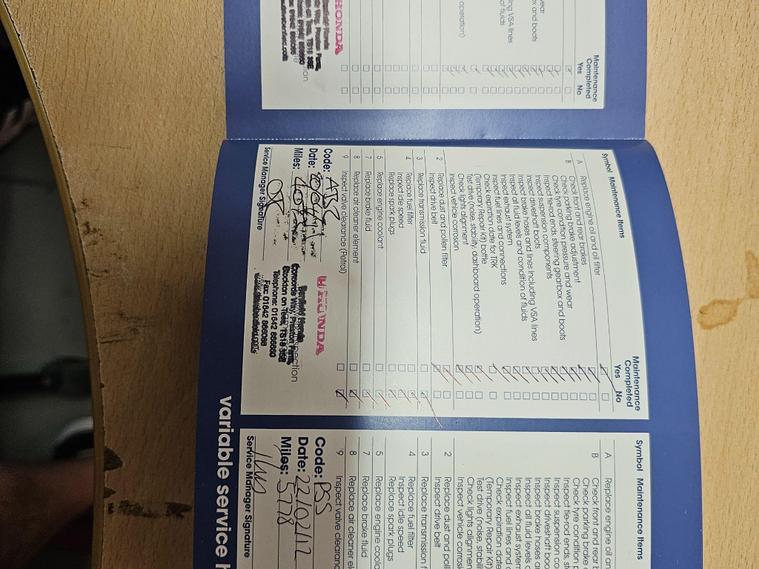 Maintenance
Completed
Yes No
ing VSA lines
of fluids
and boots
operation)
HONDA
Symbol Maintenance Items
Maintenance
Completed
Yes No
A Replace engine oil and oil filter
B Check front and rear brakes
Check parking brake adjustment
Check tyre condition pressure and wear
Inspect tie-rod ends, steering gearbox and boots
Inspect suspension components
Inspect driveshaft boots
Inspect brake hoses and lines including VSA lines
Inspect all fluid levels and condition of fluids
Inspect exhaust system
Inspect fuel lines and connections
Check expiration date for TRK
(Temporary Repair Kit) bottle
Test drive (noise, stability, dashboard operation)
Check lights alignment
Inspect vehicle corrosion
2 Replace dust and pollen filter
Inspect drive belt
3 Replace transmission fluid
4 Replace fuel filter
Inspect idle speed
Replace spark plugs
5 Replace engine coolant
7 Replace brake fluid
8 Replace air cleaner element
9 Inspect valve clearance (Petrol)
Code:
Date:
Miles:
Service Manager Signature
HONDA
Stockton on Tees, TS18 3SB
Telephone: 01642
Fax: 01642
Symbol Maintenance Items
A Replace engine oil an
B Check front and rear b
Check parking brake
Check tyre condition p
Inspect tie-rod ends, s
Inspect suspension co
Inspect driveshaft boo
Inspect brake hoses a
Inspect all fluid levels a
Inspect exhaust system
Inspect fuel lines and
Check expiration date
(Temporary Repair Kit
Test drive (noise, stabil
Check lights alignme
Inspect vehicle corros
2 Replace dust and poll
Inspect drive belt
3 Replace transmission f
4 Replace fuel filter
Inspect idle speed
Replace spark plugs
5 Replace engine coola
7 Replace brake fluid
8 Replace air cleaner el
9 Inspect valve clearanc
Code: PSS
Date: 22/02/12
Miles: 5778
Service Manager Signature
variable service